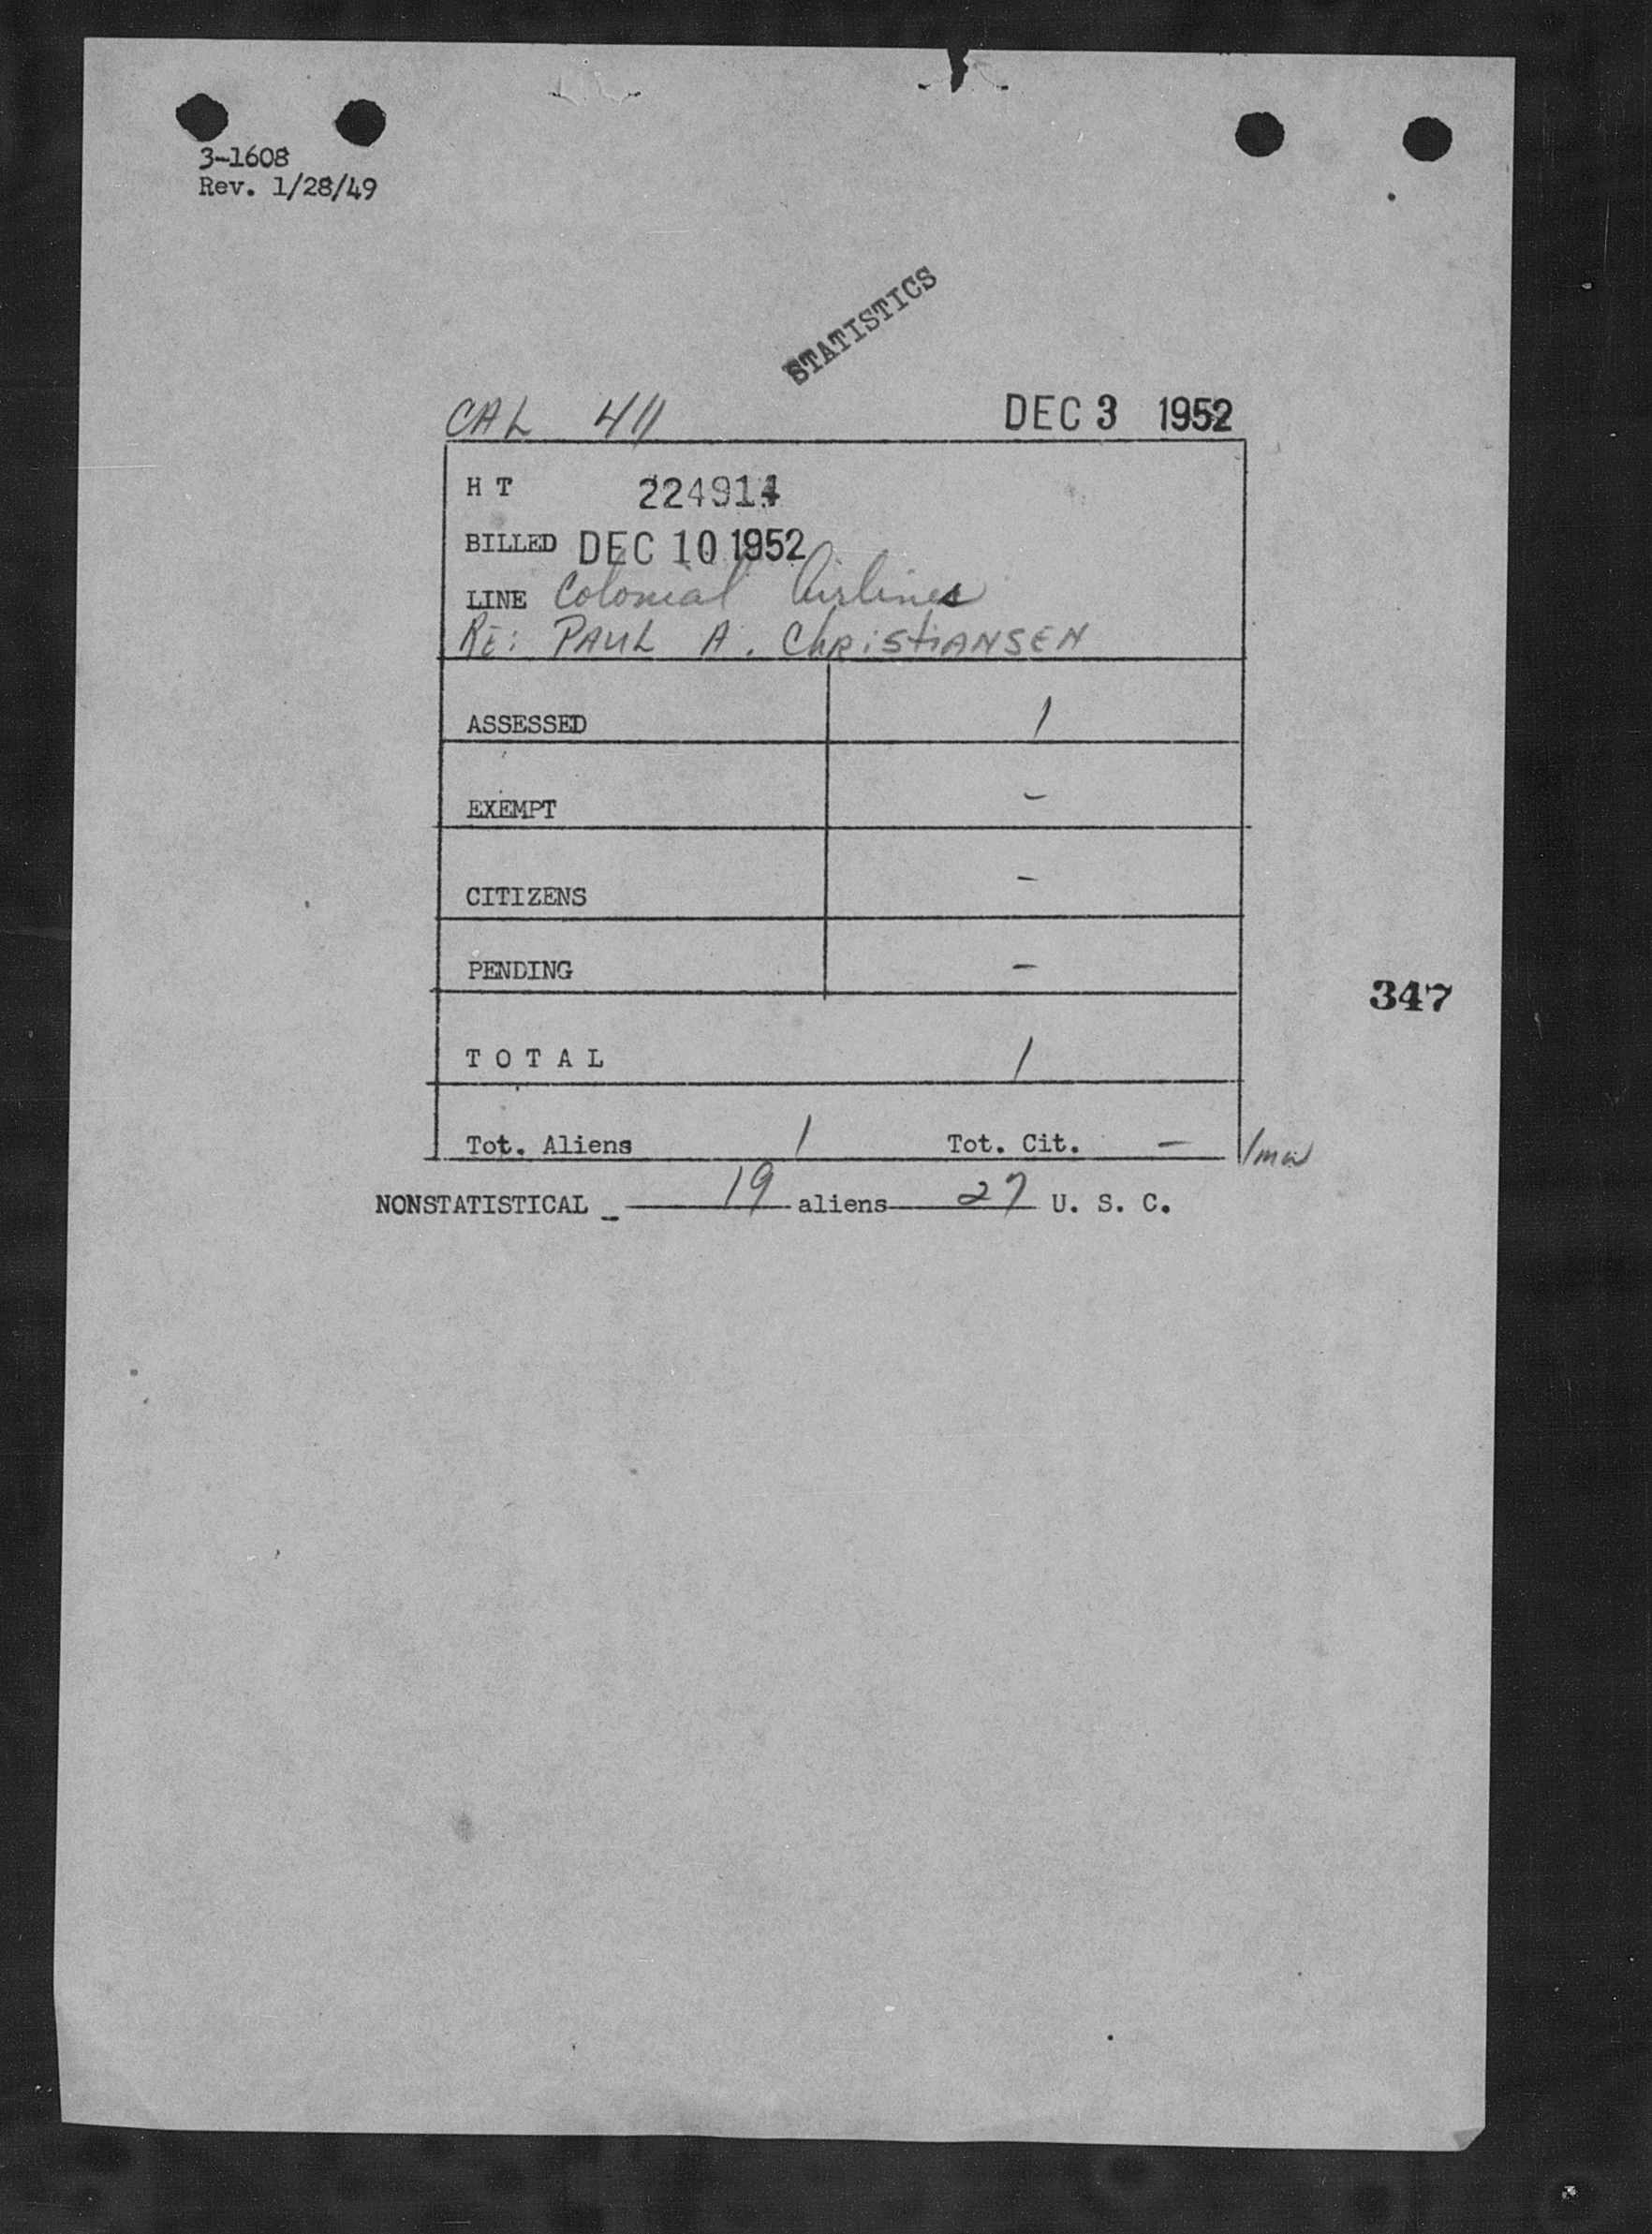 3-1608
Rev. 1/28/49
STATISTICS
CAL 411 DEC 3 1952
H T 224914
BILLED DEC 10 1952
LINE Colonial Airlines
RE: PAUL A. ChRiStiANSEN
ASSESSED 1
EXEMPT -
CITIZENS -
PENDING -
347
T O T A L 1
Tot. Aliens 1 Tot. Cit. -
NONSTATISTICAL - 19 aliens 27 U. S. C.